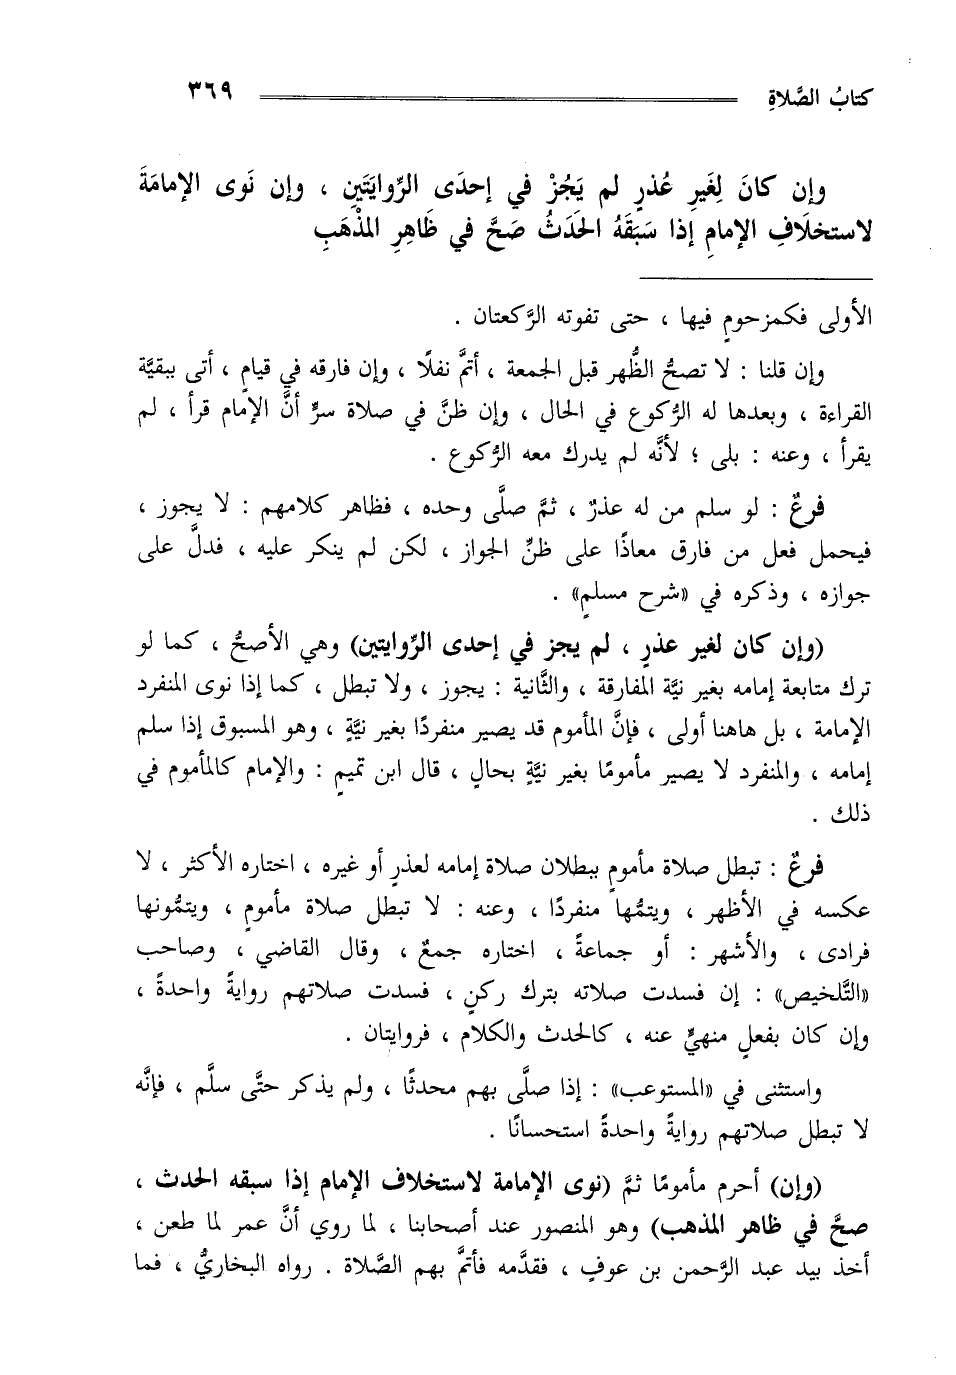 كتابُ الصَّلاةِ ٣٦٩
وإن كانَ لِغَيرِ عُذرٍ لم يَجُزْ في إحدَى الرِّوايَتَينِ ، وإن نَوى الإمامَةَ
لاستخلَافِ الإمامِ إذا سَبَقَهُ الحَدَثُ صَحَّ في ظَاهِرِ المذْهَبِ
الأولى فكمزحومٍ فيها ، حتى تفوته الرَّكعتان .
وإن قلنا : لا تصحُّ الظُّهر قبل الجمعة ، أتمَّ نفلًا ، وإن فارقه في قيامٍ ، أتى ببقيَّة
القراءة ، وبعدها له الرُّكوع في الحال ، وإن ظنَّ في صلاة سرٍّ أنَّ الإمام قرأ ، لم
يقرأ ، وعنه : بلى ؛ لأنَّه لم يدرك معه الرُّكوع .
فرعٌ : لو سلم من له عذرٌ ، ثمَّ صلَّى وحده ، فظاهر كلامهم : لا يجوز ،
فيحمل فعل من فارق معاذًا على ظنِّ الجواز ، لكن لم ينكر عليه ، فدلَّ على
جوازه ، وذكره في «شرح مسلمٍ» .
(وإن كان لغير عذرٍ ، لم يجز في إحدى الرِّوايتين) وهي الأصحُّ ، كما لو
ترك متابعة إمامه بغير نيَّة المفارقة ، والثَّانية : يجوز ، ولا تبطل ، كما إذا نوى المنفرد
الإمامة ، بل هاهنا أولى ، فإنَّ المأموم قد يصير منفردًا بغير نيَّةٍ ، وهو المسبوق إذا سلم
إمامه ، والمنفرد لا يصير مأمومًا بغير نيَّةٍ بحالٍ ، قال ابن تميمٍ : والإمام كالمأموم في
ذلك .
فرعٌ : تبطل صلاة مأمومٍ ببطلان صلاة إمامه لعذرٍ أو غيره ، اختاره الأكثر ، لا
عكسه في الأظهر ، ويتمُّها منفردًا ، وعنه : لا تبطل صلاة مأمومٍ ، ويتمُّونها
فرادى ، والأشهر : أو جماعةً ، اختاره جمعٌ ، وقال القاضي ، وصاحب
«التَّلخيص» : إن فسدت صلاته بترك ركنٍ ، فسدت صلاتهم روايةً واحدةً ،
وإن كان بفعلٍ منهيٍّ عنه ، كالحدث والكلام ، فروايتان .
واستثنى في «المستوعب» : إذا صلَّى بهم محدثًا ، ولم يذكر حتَّى سلَّم ، فإنَّه
لا تبطل صلاتهم روايةً واحدةً استحسانًا .
(وإن) أحرم مأمومًا ثمَّ (نوى الإمامة لاستخلاف الإمام إذا سبقه الحدث ،
صحَّ في ظاهر المذهب) وهو المنصور عند أصحابنا ، لما روي أنَّ عمر لما طعن ،
أخذ بيد عبد الرَّحمن بن عوفٍ ، فقدَّمه فأتمَّ بهم الصَّلاة . رواه البخاريُّ ، فما